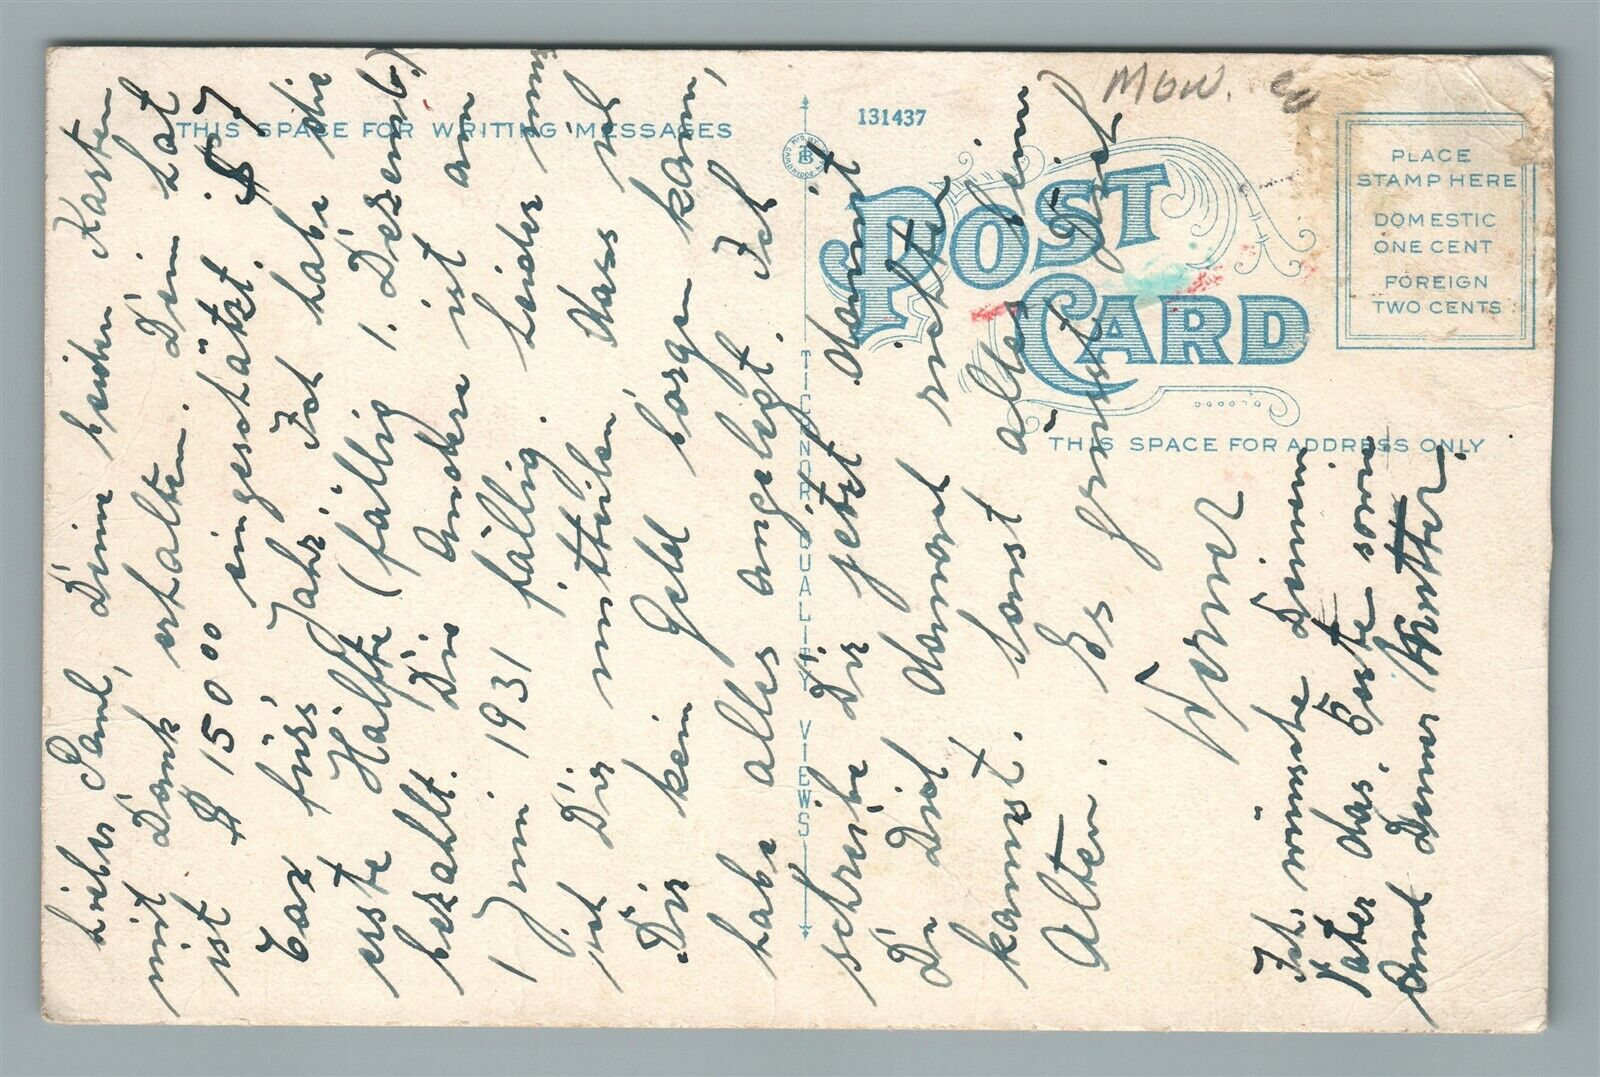 THIS SPACE FOR WRITING MESSAGES
131437
POST CARD
PLACE
STAMP HERE
DOMESTIC
ONE CENT
FOREIGN
TWO CENTS
THIS SPACE FOR ADDRESS ONLY
TICHNOR QUALITY VIEWS
Liebes Paul, Deine beiden Karten
mit Dank erhalten. Dein Lot
ist $ 1500 00 eingeschätzt. $ 7
Tax fürs Jahr. Ich habe die
erste Hälfte (fällig 1. Dezemb.)
bezahlt. Die andere ist am
1 Juni 1931 fällig. Leider muss
ich Dir mitteilen, dass ich
Dir kein Geld borgen kann,
habe alles angelegt. Ich
schreibe Dir jetzt damit
Du Dich danach richten
kannst. Sonst alles beim
Alten. Es grüsst Dich
Werner
Ich wünsche Deinem
Vater das Beste sowie
auch Deiner Mutter.